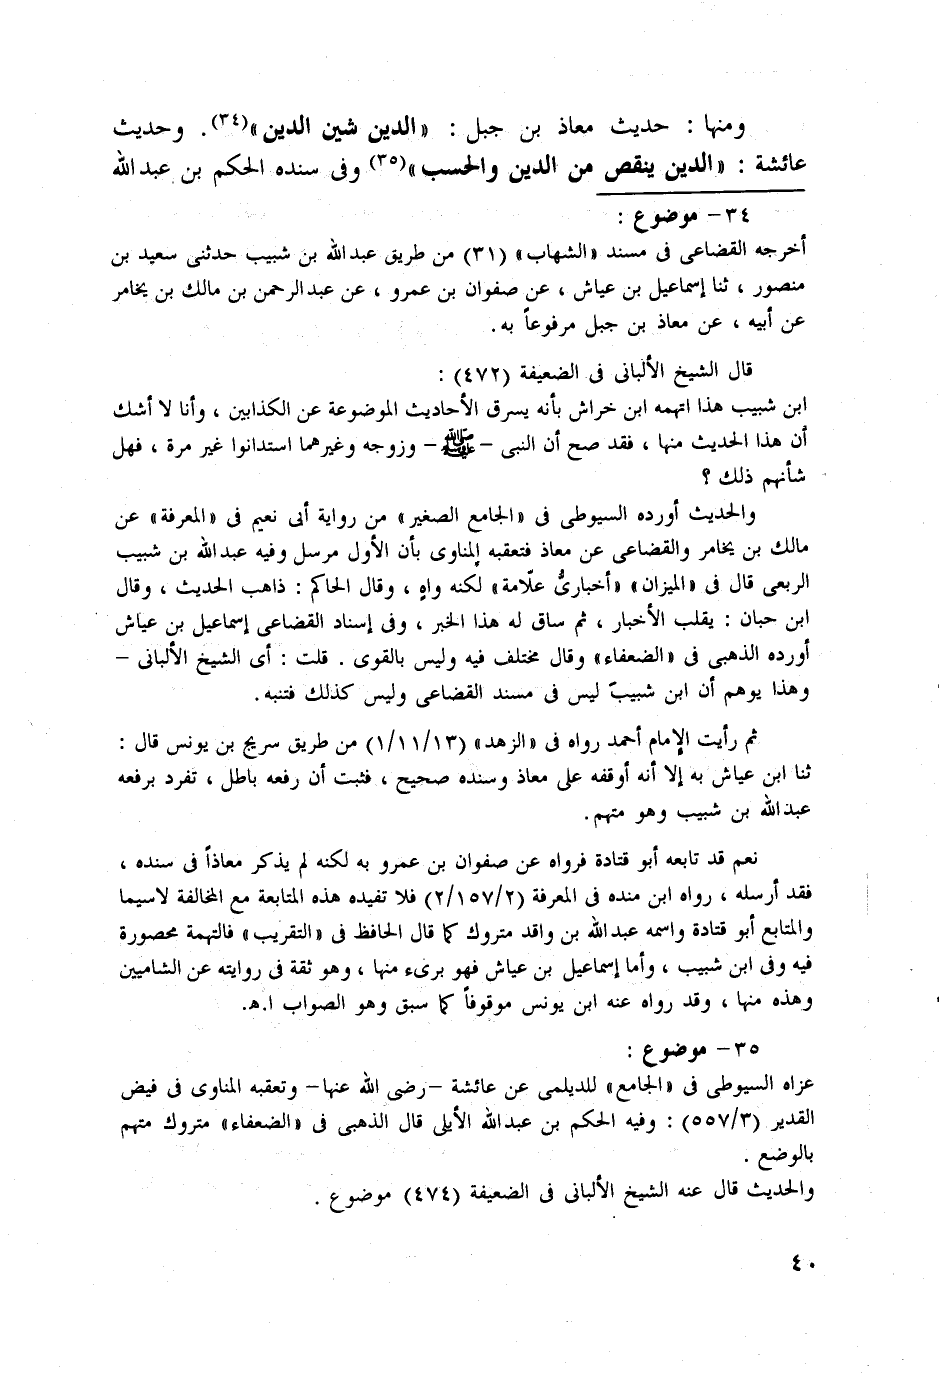 ومنها : حديث معاذ بن جبل : «الدين شين الدين»(٣٤). وحديث
عائشة : «الدين ينقص من الدين والحسب»(٣٥) وفى سنده الحكم بن عبد الله
٣٤- موضوع :
أخرجه القضاعى فى مسند «الشهاب» (٣١) من طريق عبدالله بن شبيب حدثنى سعيد بن
منصور ، ثنا إسماعيل بن عياش ، عن صفوان بن عمرو ، عن عبدالرحمن بن مالك بن يخامر
عن أبيه ، عن معاذ بن جبل مرفوعاً به.
قال الشيخ الألبانى فى الضعيفة (٤٧٢) :
ابن شبيب هذا اتهمه ابن خراش بأنه يسرق الأحاديث الموضوعة عن الكذابين ، وأنا لا أشك
أن هذا الحديث منها ، فقد صح أن النبى - ﷺ - وزوجه وغيرهما استدانوا غير مرة ، فهل
شأنهم ذلك ؟
والحديث أورده السيوطى فى «الجامع الصغير» من رواية أبى نعيم فى «المعرفة» عن
مالك بن يخامر والقضاعى عن معاذ فتعقبه المناوى بأن الأول مرسل وفيه عبدالله بن شبيب
الربعى قال فى «الميزان» «أخبارىُّ علّامة» لكنه واهٍ ، وقال الحاكم : ذاهب الحديث ، وقال
ابن حبان : يقلب الأخبار ، ثم ساق له هذا الخبر ، وفى إسناد القضاعى إسماعيل بن عياش
أورده الذهبى فى «الضعفاء» وقال مختلف فيه وليس بالقوى . قلت : أى الشيخ الألبانى -
وهذا يوهم أن ابن شبيب ليس فى مسند القضاعى وليس كذلك فتنبه.
ثم رأيت الإمام أحمد رواه فى «الزهد» (١/١١/١٣) من طريق سريج بن يونس قال :
ثنا ابن عياش به إلا أنه أوقفه على معاذ وسنده صحيح ، فثبت أن رفعه باطل ، تفرد برفعه
عبدالله بن شبيب وهو متهم.
نعم قد تابعه أبو قتادة فرواه عن صفوان بن عمرو به لكنه لم يذكر معاذاً فى سنده ،
فقد أرسله ، رواه ابن منده فى المعرفة (٢/١٥٧/٢) فلا تفيده هذه المتابعة مع المخالفة لاسيما
والمتابع أبو قتادة واسمه عبدالله بن واقد متروك كما قال الحافظ فى «التقريب» فالتهمة محصورة
فيه وفى ابن شبيب ، وأما إسماعيل بن عياش فهو برىء منها ، وهو ثقة فى روايته عن الشاميين
وهذه منها ، وقد رواه عنه ابن يونس موقوفاً كما سبق وهو الصواب ا.هـ.
٣٥- موضوع :
عزاه السيوطى فى «الجامع» للديلمى عن عائشة -رضى الله عنها- وتعقبه المناوى فى فيض
القدير (٥٥٧/٣) : وفيه الحكم بن عبدالله الأيلى قال الذهبى فى «الضعفاء» متروك متهم
بالوضع .
والحديث قال عنه الشيخ الألبانى فى الضعيفة (٤٧٤) موضوع .
٤٠